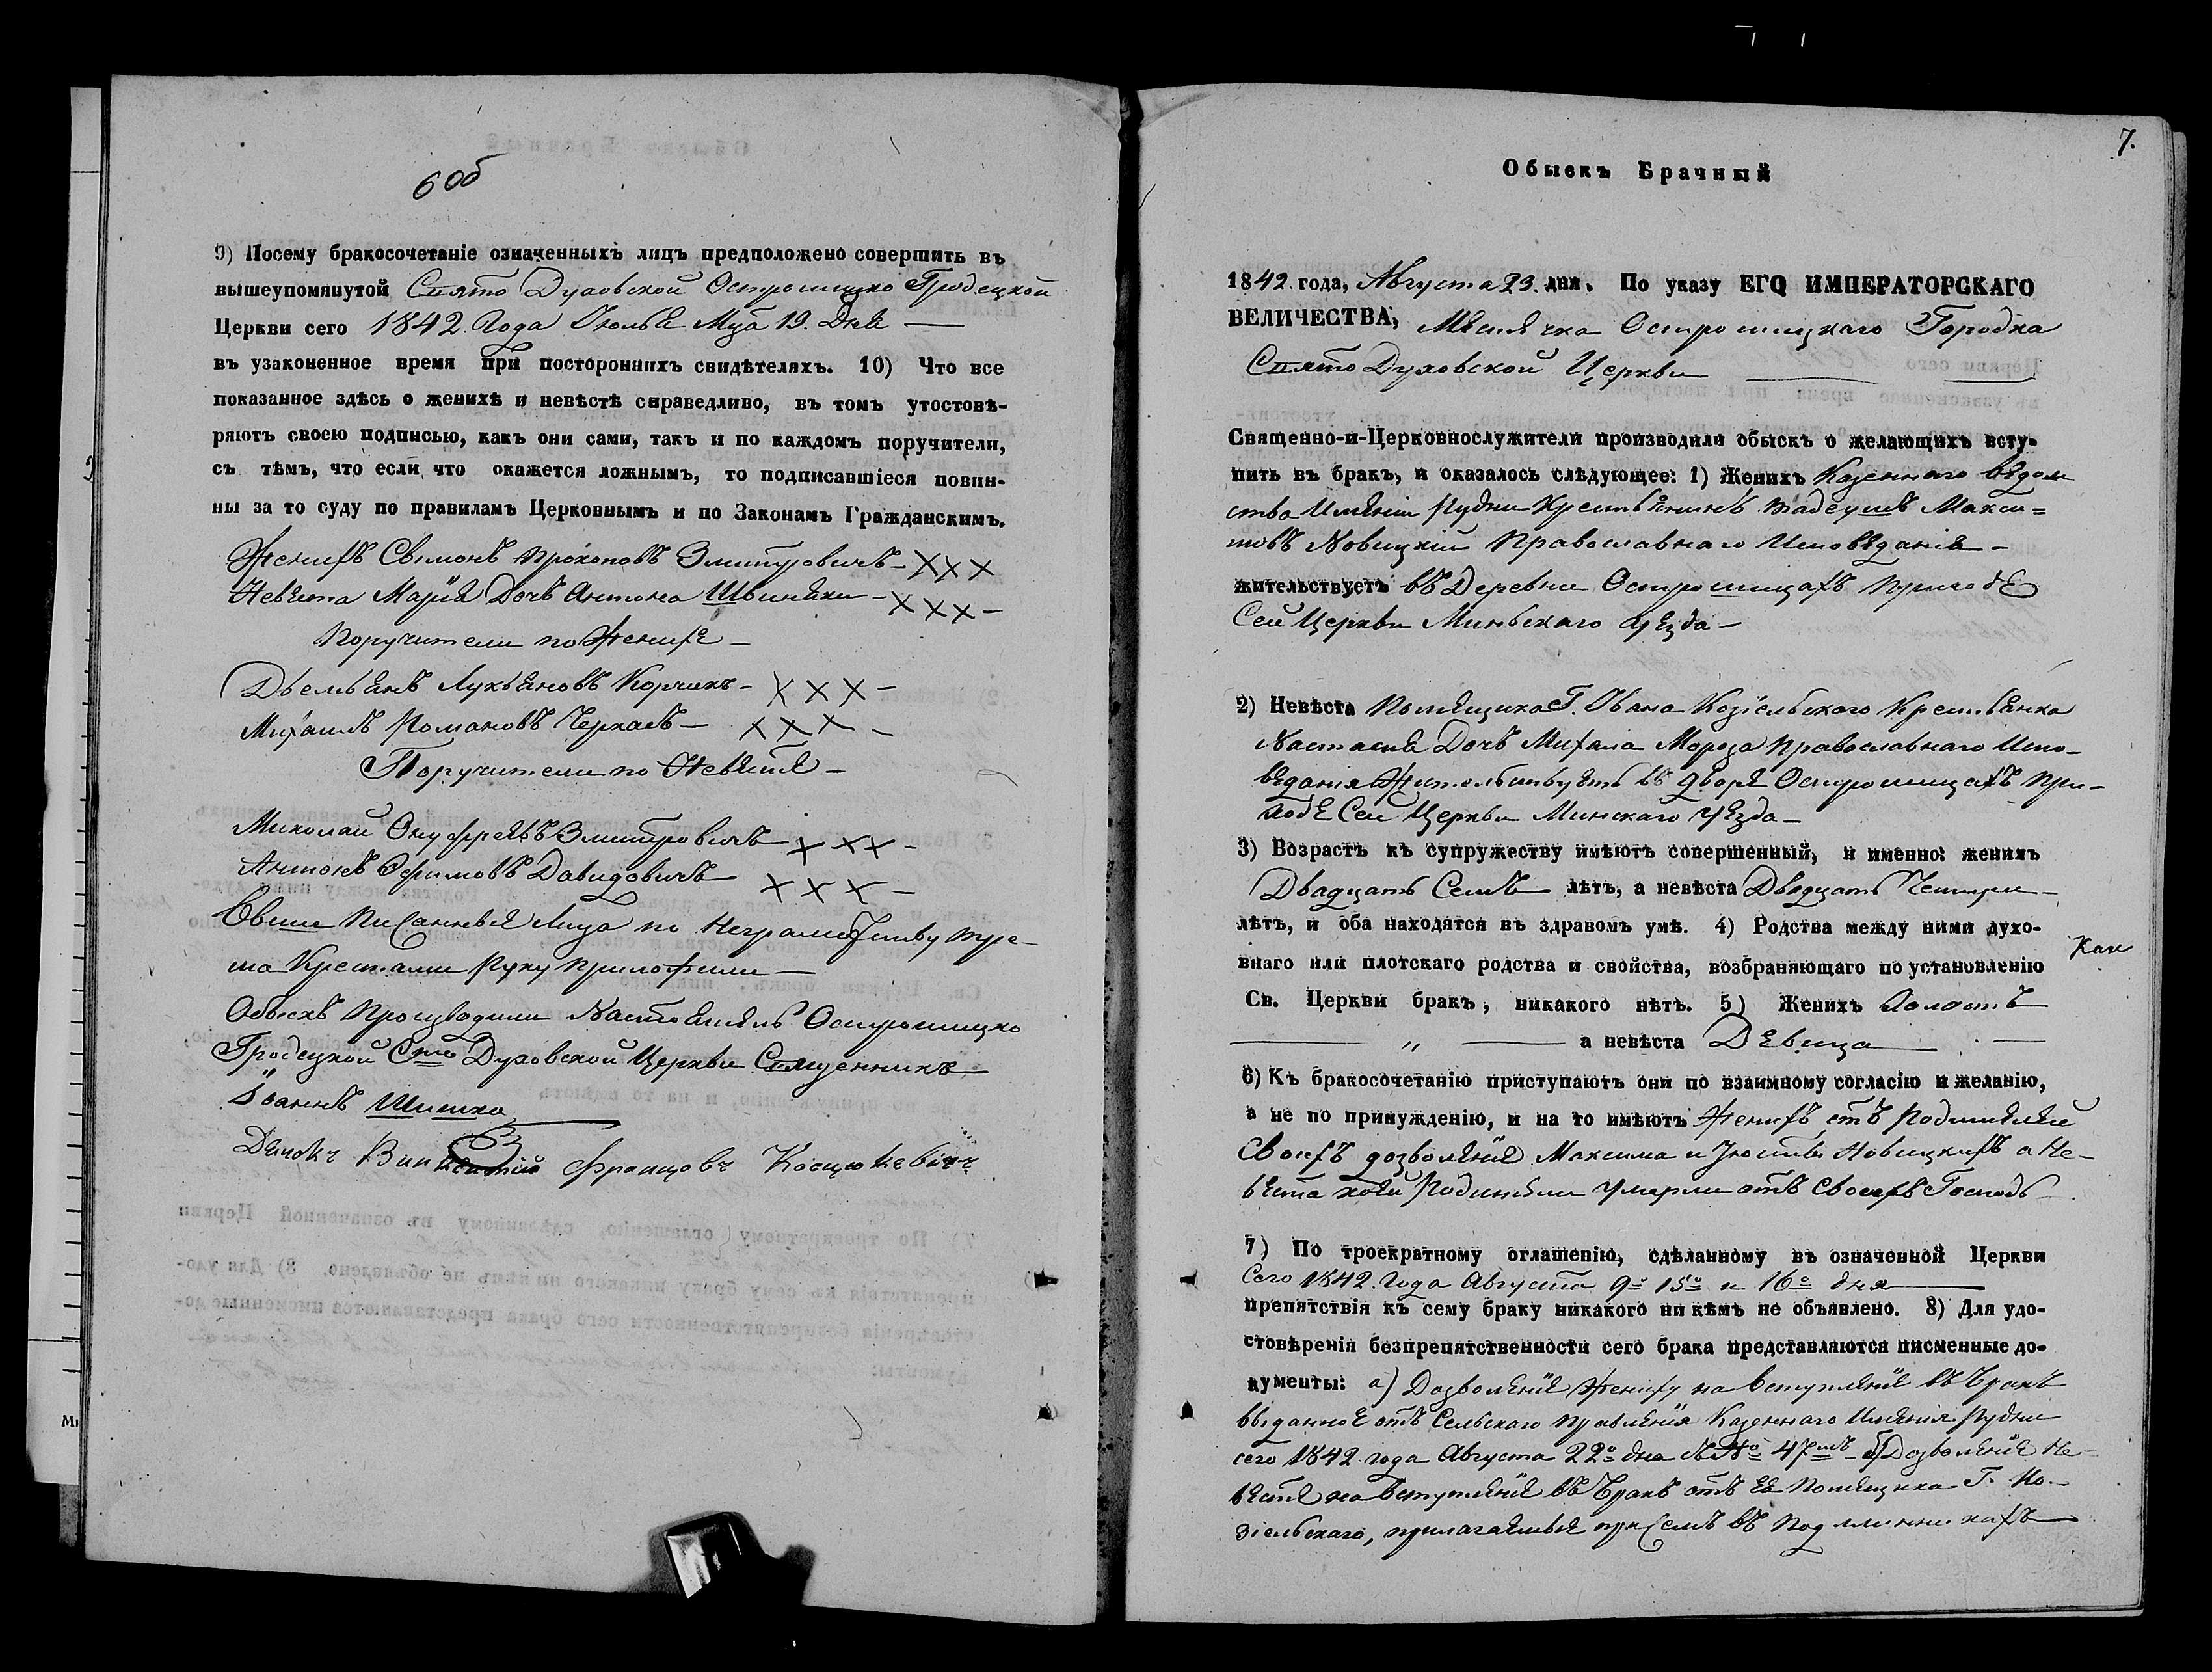 6 об
9) Посему бракосочетаніе означенныхъ лицъ предположено совершить въ
вышеупомянутой Свято Духовской Острошицко Гродецкой
Церкви сего 1842. Года Іюля Мца 19. Дня —
въ узаконенное время при постороннихъ свидѣтеляхъ. 10) Что все
показанное здѣсь о женихѣ и невѣстѣ справедливо, въ томъ утостовѣ-
ряютъ своею подписью, какъ они сами, такъ и по каждомъ поручители,
съ тѣмъ, что если что окажется ложнымъ, то подписавшіеся повин-
ны за то суду по правиламъ Церковнымъ и по Законамъ Гражданскимъ.
Женихъ Сымонъ Прокоповъ Змитровичъ — ХХХ
Невѣста Марія Дочъ Антона Швиняки — ХХХ —
Поручители по Женихѣ —
Дѣемьянъ Лукьяновъ Корчикъ — ХХХ —
Михаилъ Романовъ Черкасъ — ХХХ —
Поручители по Невѣстѣ —
Миколай Онуфреявъ Змитровичъ ХХХ —
Антонъ Ефимовъ Давидовичъ ХХХ —
Выше Писанныя Лица по Неграмотству тре-
ма Крестами Руку Приложили —
Обыскъ Производили Настоятель Острошицко
Гродецкой Сто Духовской Церкви Священникъ
Іоаннъ Шишко
Дьячокъ Викентій Францовъ Косцюкевичъ
7.
Обыскъ Брачный
1842 года, Августа 23. дня. По указу ЕГО ИМПЕРАТОРСКАГО
ВЕЛИЧЕСТВА, Мѣстечка Острошицкаго Городка
Свято Духовской Церкви
Священно-и-Церковнослужители производили обыскъ о желающихъ всту-
пить въ бракъ, и оказалось слѣдующее: 1) Женихъ Казеннаго вѣдом
ства Имѣнія Рудни Крестьянинъ Тадеушъ Макси=
мовъ Новицкій Православнаго Исповѣданія —
жительствуетъ въ Деревни Острошицахъ приходѣ
Сей Церкви Миньскаго уѣзда —
2) Невѣста Помѣщика Г. Ивана Козіельскаго Крестьянка
Настасія Дочъ Михала Мороза Православнаго Испо-
вѣданія Жительствуетъ въ дворѣ Острошицахъ При-
ходѣ Сей Церкви Минскаго Уѣзда —
3) Возрастъ къ супружеству имѣютъ совершенный, и именно: женихъ
Двадцать Семъ лѣтъ, а невѣста Двадцать Четыри —
лѣтъ, и оба находятся въ здравомъ умѣ. 4) Родства между ними духо-
внаго или плотскаго родства и свойства, возбраняющаго по установленію
Св. Церкви бракъ, никакого нѣтъ. 5) Женихъ Холостъ
— „ — а невѣста Дѣвица —
6) Къ бракосочетанію приступаютъ они по взаимному согласію и желанію,
а не по принужденію, и на то имѣютъ Женихъ отъ Родителей
Своихъ дозволѣніе Максима и Юсты Новицкихъ а Не-
вѣста коей Родители Умерли отъ Своихъ Господъ
7) По троекратному оглашенію, сдѣланному въ означенной Церкви
Сего 1842. Года Августа 9о 15о и 16о дня
препятствія къ сему браку никакого ни кѣмъ не объявлено. 8) Для удо-
стовѣренія безпрепятственности сего брака представляются писменные до-
кументы: а) Дозволѣніе Жениху на вступлѣніе въ бракъ
выданное отъ Сельскаго Правлѣнія Казеннаго Имѣнія Рудни
сего 1842. года Августа 22о дня 47мъ б) Дозволѣніе Не-
вѣстѣ на вступлѣніе въ бракъ отъ Ея Помѣщика Г. Ко-
зіельскаго, прилагаемыя при семъ въ подлинникахъ